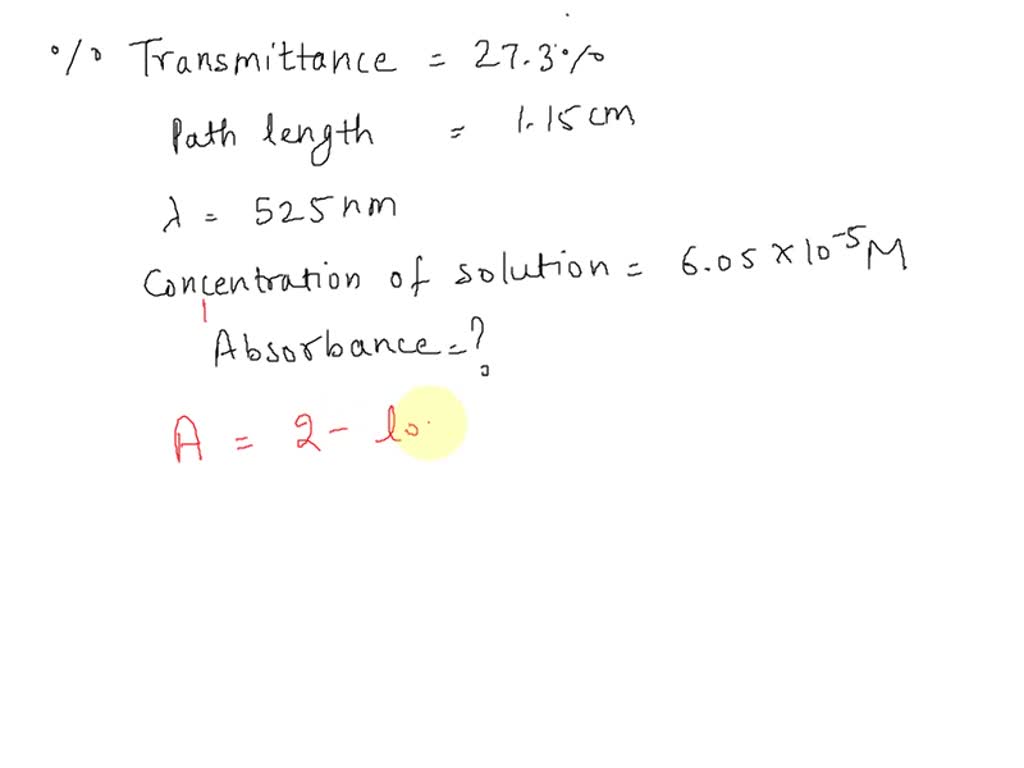 % Transmittance = 27.3%
Path length = 1.15 cm
λ = 525 nm
Concentration of solution = 6.05 × 10⁻⁵ M
Absorbance = ?
A = 2 - lo